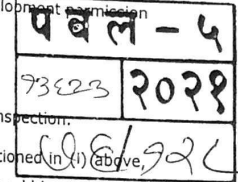 lopment permission
पवल - ५
१३६२३ २०२१
nspection.
tioned in (i) above,